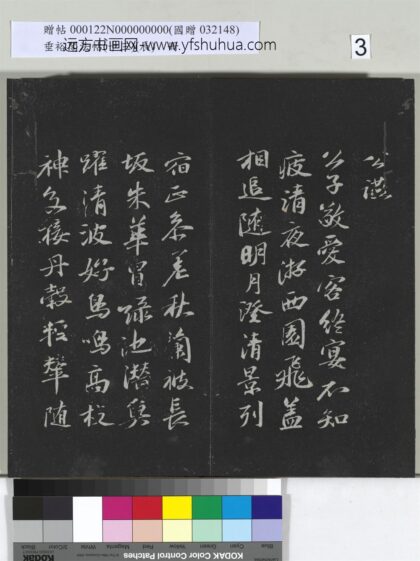 贈帖 000122N000000000(國贈 032148)
远方书画网 www.yfshuhua.com
3
公讌
公子敬愛客終宴不知
疲清夜游西園飛蓋
相追隨明月澄清景列
宿正參差秋蘭被長
坂朱華冒綠池潛魚
躍清波好鳥鳴高枝
神飆接丹轂輕輦隨
Blue Cyan Green Yellow Red Magenta White 3/Color Black
KODAK Color Control Patches